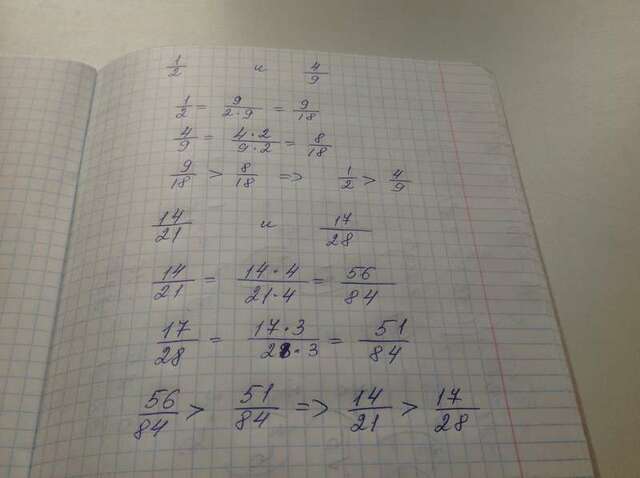 1/2 и 4/9
1/2 = 9/2·9 = 9/18
4/9 = 4·2/9·2 = 8/18
9/18 > 8/18 => 1/2 > 4/9
14/21 и 17/28
14/21 = 14·4/21·4 = 56/84
17/28 = 17·3/28·3 = 51/84
56/84 > 51/84 => 14/21 > 17/28